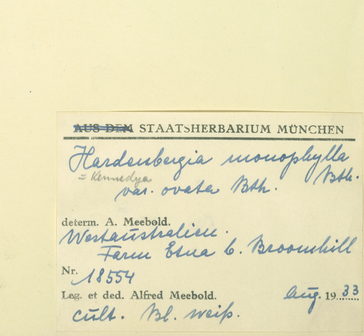 AUS DEM STAATSHERBARIUM MÜNCHEN
Hardenbergia monophylla
= Kennedya Bth.
var. ovata Bth.
determ. A. Meebold.
Westaustralien.
Farm Etna b. Broomhill
Nr. 18554
Leg. et ded. Alfred Meebold. Aug. 1933
cult. Bl. weiß.